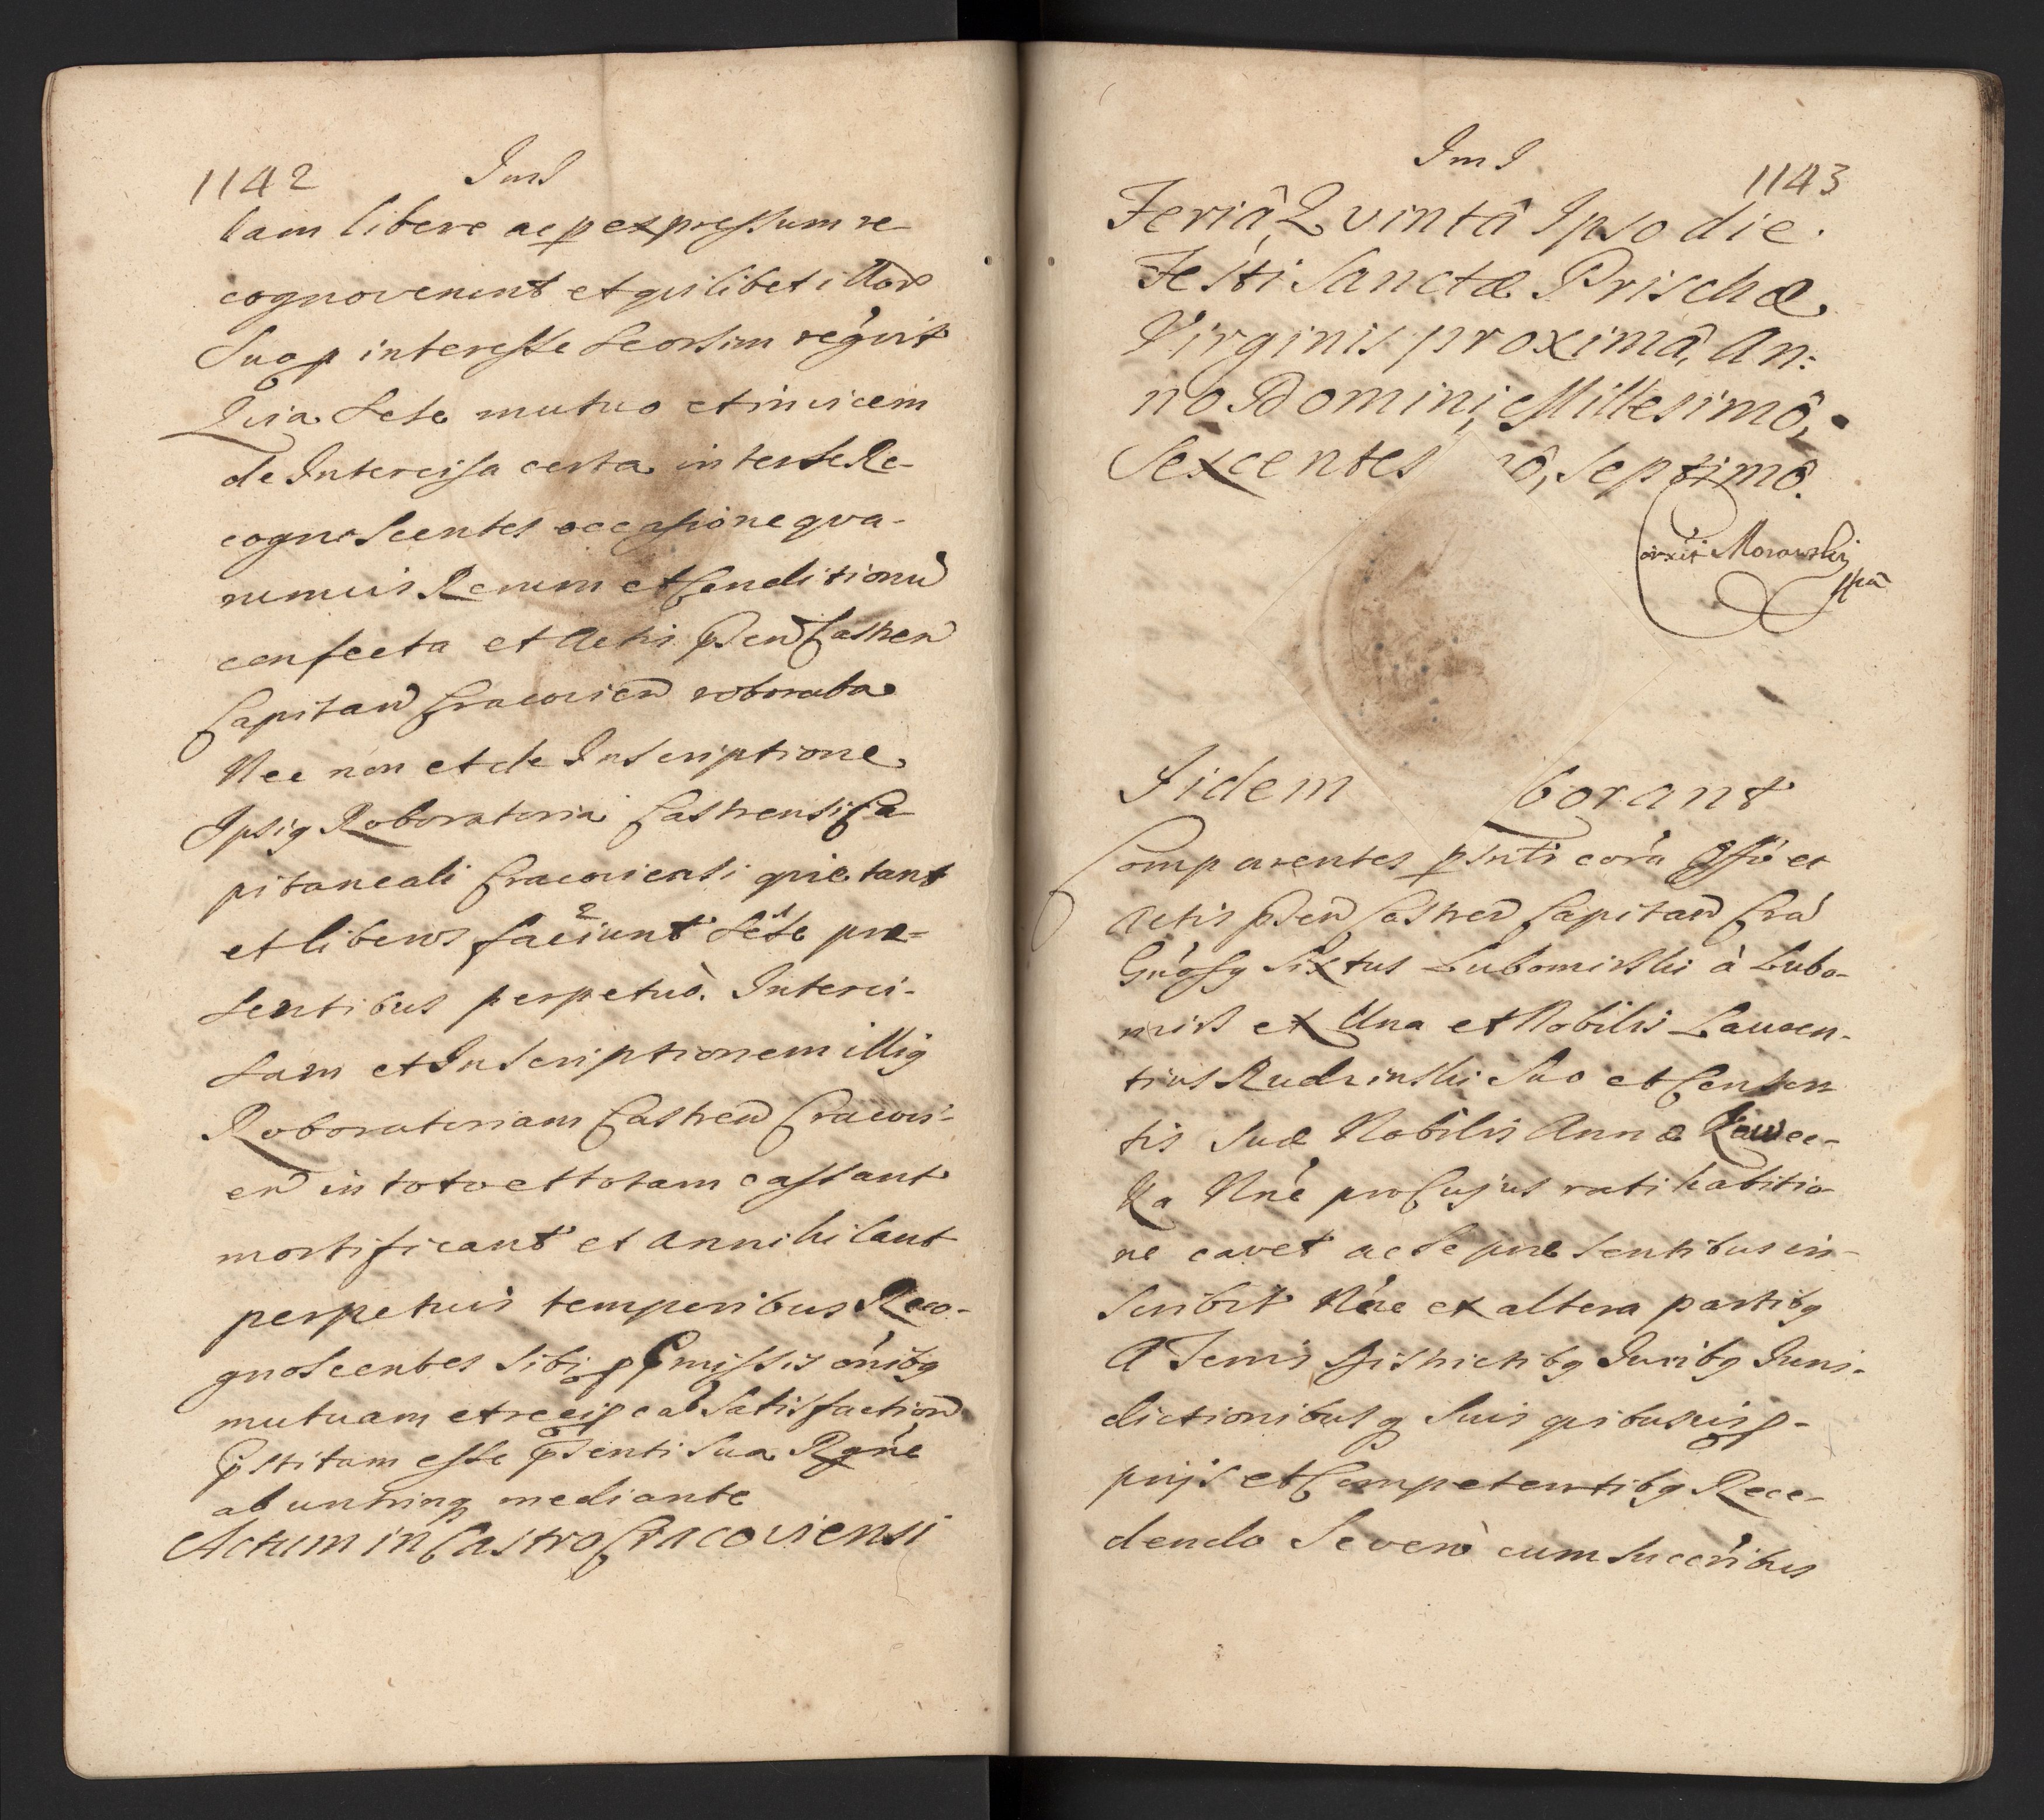 1142
lam libere ac p expressum re-
cognoverunt et quilibet illor
Suo p interesse seorsim regvit
Quia sese mutuo et invicem
de Intercisa certa inter se Re-
cognoscentes occasione qva-
rumvis Rerum et Conditionu
confecta et Actis pñ Castren
Capitan Cracovien roborata
Nec non et de Inscriptione
Ipsiq Roboratoria Castrensi Ca-
pitaneali Cracoviensi quietant
et liberos faciunt sese præ-
sentibus perpetuò. Interci-
sam et Inscriptionem illiq
Roboratoriam Castren Cracovi-
en in toto et totam cassant
mortificant et annihilant
perpetuis temporibus Reco-
gnoscentes sibi p pmissis oñibq
mutuam et recipcal Satisfaction
pstitam esse psenti Sua Rgñe
ab utrinq mediante
Actum in Castro Cracoviensi
1143
Feriâ Qvintâ Ipso die
Festi Sanctæ Prischæ
Virginis proximâ, An:
no Domini, Millesimô,
Sexcentes nô, Septimô.
Morawski
Fidem borant
Comparentes psnti corà Offô et
Actis psen Castren Capitan Cra
Gñosq Sixtus Lubomirski à Lubo-
mirs ex Una et Nobilis Lauren-
tius Rudzinski Suo et Consor-
tis Suæ Nobilis Annæ Rawec-
ka Nñe pro Cujus ratihabitio-
ne cavet ac se præsentibus in-
scribit Nñe ex altera partibq
A Terris Districtibq Juribq Juri-
dictionibusq Suis qvibusvis p-
prijs et Competentibq Rece-
dendo Severò cum Succribus